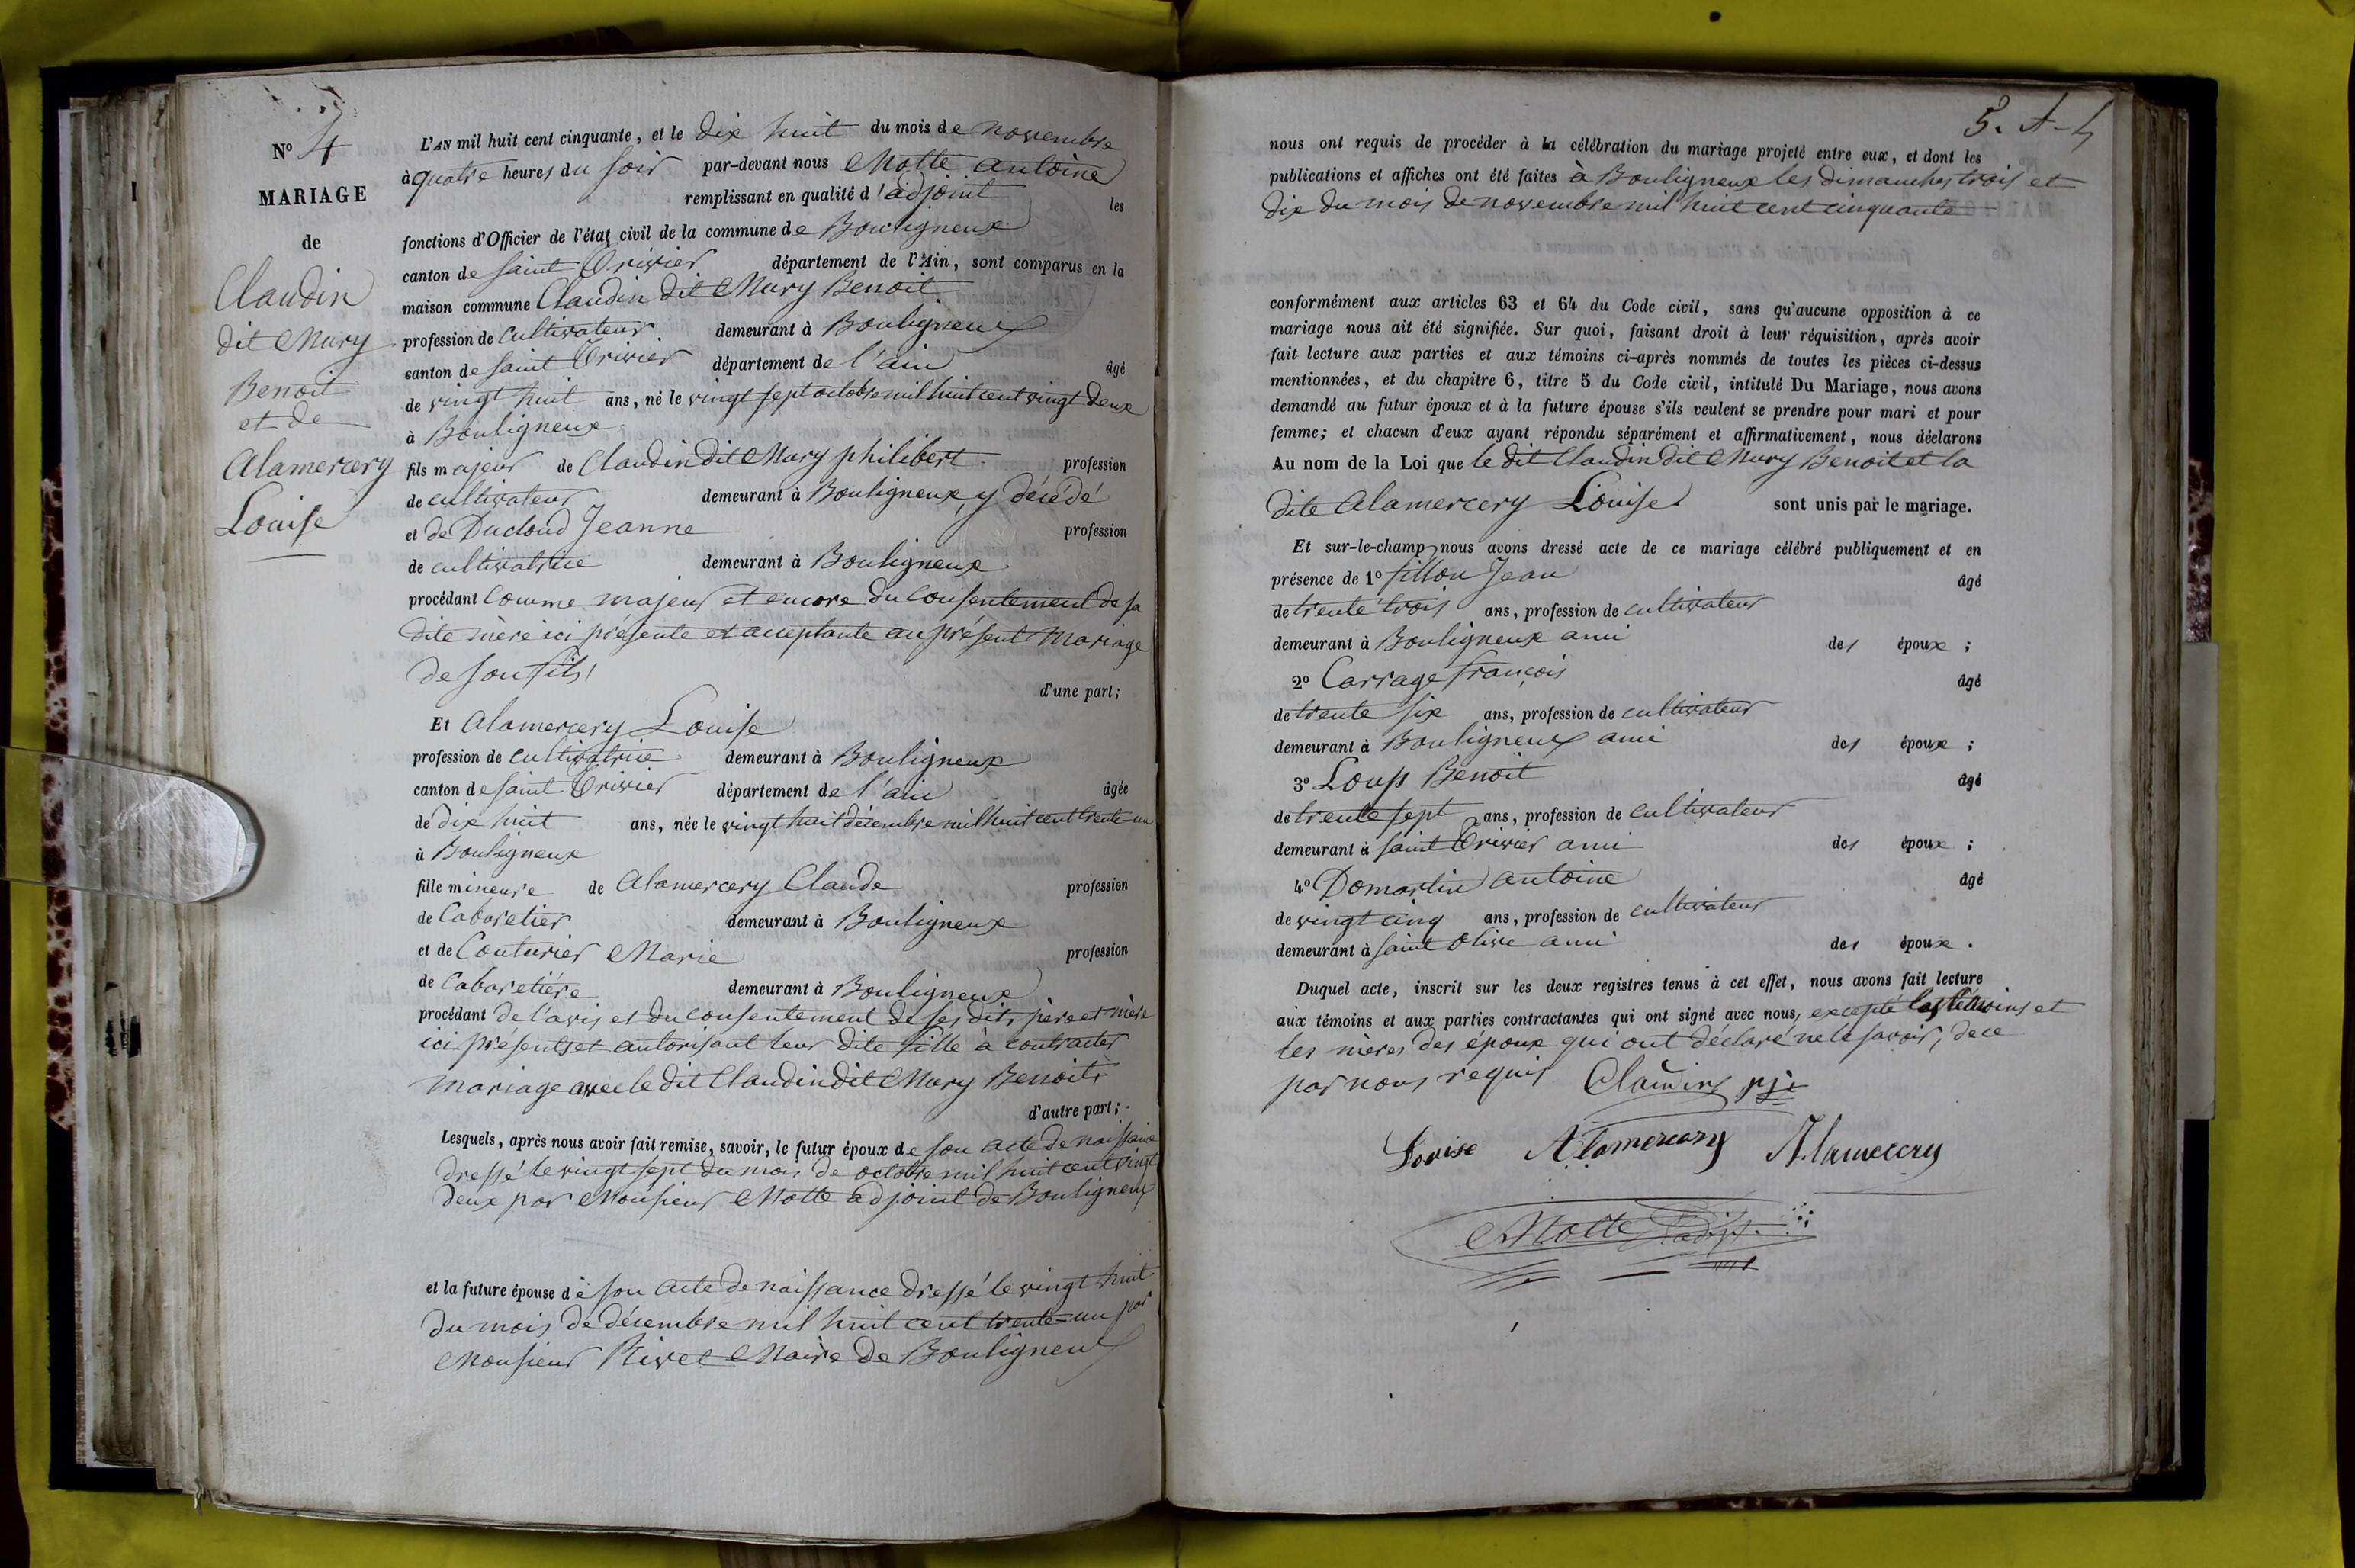 N° 4
MARIAGE
de
Claudin
dit Mury
Benoit
et de
Alamercery
Louise
L'AN mil huit cent cinquante, et le dix huit du mois de novembre
à quatre heures du soir par-devant nous Motte antoine
remplissant en qualité d'adjoint les
fonctions d'Officier de l'état civil de la commune de Bouligneux
canton de saint Trivier département de l'Ain, sont comparus en la
maison commune Claudin dit Mury Benoit
profession de cultivateur demeurant à Bouligneux
canton de saint Trivier département de l'ain âgé
de vingt huit ans, né le vingt sept octobre mil huit cent vingt deux
à Bouligneux
fils majeur de Claudin dit Mury philibert profession
de cultivateur demeurant à Bouligneux, y décédé
et de Ducloud Jeanne profession
de cultivatrice demeurant à Bouligneux
procédant comme majeur et encore du consentement de sa
dite mère ici présente et acceptante au présent mariage
de son fils
d'une part;
Et Alamercery Louise
profession de cultivatrice demeurant à Bouligneux
canton de saint Trivier département de l'ain âgée
de dix huit ans, née le vingt huit décembre mil huit cent trente-un
à Bouligneux
fille mineure de Alamercery Claude profession
de Cabaretier demeurant à Bouligneux
et de Couturier Marie profession
de Cabaretière demeurant à Bouligneux
procédant de l'avis et du consentement de ses dits père et mère
ici présents et autorisant leur dite fille à contracter
mariage avec le dit Claudin dit Mury Benoit
d'autre part;
Lesquels, après nous avoir fait remise, savoir, le futur époux de son acte de naissance
dressé le vingt sept du mois de octobre mil huit cent vingt
deux par Monsieur Motte adjoint de Bouligneux
et la future épouse de son acte de naissance dressé le vingt huit
du mois de décembre mil huit cent trente-un par
Monsieur Rivet Maire de Bouligneux
nous ont requis de procéder à la célébration du mariage projeté entre eux, et dont les
publications et affiches ont été faites à Bouligneux les dimanches trois et
dix du mois de novembre mil huit cent cinquante
conformément aux articles 63 et 64 du Code civil, sans qu'aucune opposition à ce
mariage nous ait été signifiée. Sur quoi, faisant droit à leur réquisition, après avoir
fait lecture aux parties et aux témoins ci-après nommés de toutes les pièces ci-dessus
mentionnées, et du chapitre 6, titre 5 du Code civil, intitulé Du Mariage, nous avons
demandé au futur époux et à la future épouse s'ils veulent se prendre pour mari et pour
femme; et chacun d'eux ayant répondu séparément et affirmativement, nous déclarons
Au nom de la Loi que le dit Claudin dit Mury Benoit et la
dite Alamercery Louise sont unis par le mariage.
Et sur-le-champ nous avons dressé acte de ce mariage célébré publiquement et en
présence de 1° fillon Jean âgé
de trente trois ans, profession de cultivateur
demeurant à Bouligneux ami des époux ;
2° Carrage françois âgé
de trente six ans, profession de cultivateur
demeurant à Bouligneux ami des époux ;
3° Loup Benoit âgé
de trente sept ans, profession de cultivateur
demeurant à saint Trivier ami des époux ;
4° Domartin antoine âgé
de vingt cinq ans, profession de cultivateur
demeurant à saint Olive ami des époux .
Duquel acte, inscrit sur les deux registres tenus à cet effet, nous avons fait lecture
aux témoins et aux parties contractantes qui ont signé avec nous, excepté les témoins et
les mères des époux qui ont déclaré ne le savoir, de ce
par nous requis Claudin
Louise Alamercery Alamercery
Motte adjt.